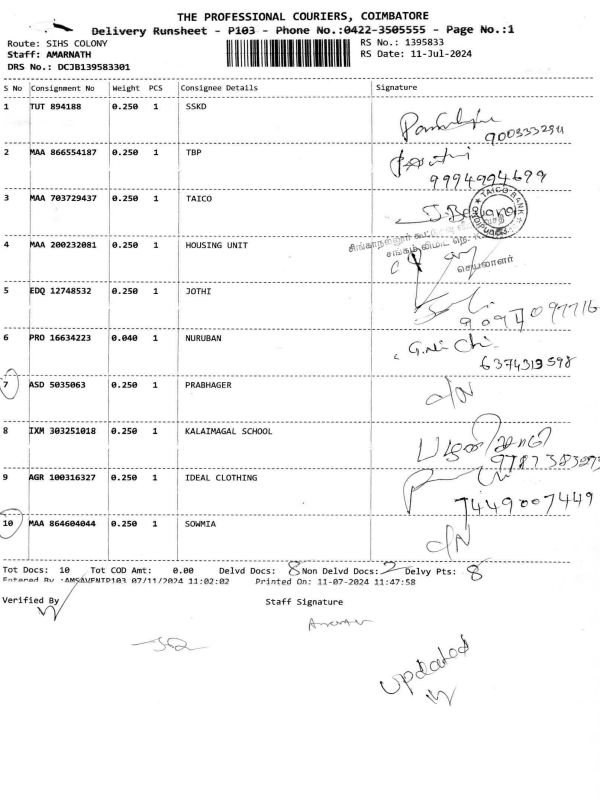 THE PROFESSIONAL COURIERS, COIMBATORE
Delivery Runsheet - P103 - Phone No.:0422-3505555 - Page No.:1
Route: SIHS COLONY RS No.: 1395833
Staff: AMARNATH RS Date: 11-Jul-2024
DRS No.: DCJB139583301
S No Consignment No Weight PCS Consignee Details Signature
1 TUT 894188 0.250 1 SSKD
2 MAA 866554187 0.250 1 TBP
9994994699
3 MAA 703729437 0.250 1 TAICO
TAICO BANK
4 MAA 200232081 0.250 1 HOUSING UNIT
செயலாளர்
5 EDQ 12748532 0.250 1 JOTHI
6 PRO 16634223 0.040 1 NURUBAN
6374319598
7 ASD 5035063 0.250 1 PRABHAGER
8 IXM 303251018 0.250 1 KALAIMAGAL SCHOOL
9 AGR 100316327 0.250 1 IDEAL CLOTHING
7449007449
10 MAA 864604044 0.250 1 SOWMIA
Tot Docs: 10 Tot COD Amt: 0.00 Delvd Docs: 8 Non Delvd Docs: 2 Delvy Pts: 8
Entered By :AMSAVENIP103 07/11/2024 11:02:02 Printed On: 11-07-2024 11:47:58
Verified By Staff Signature
updated